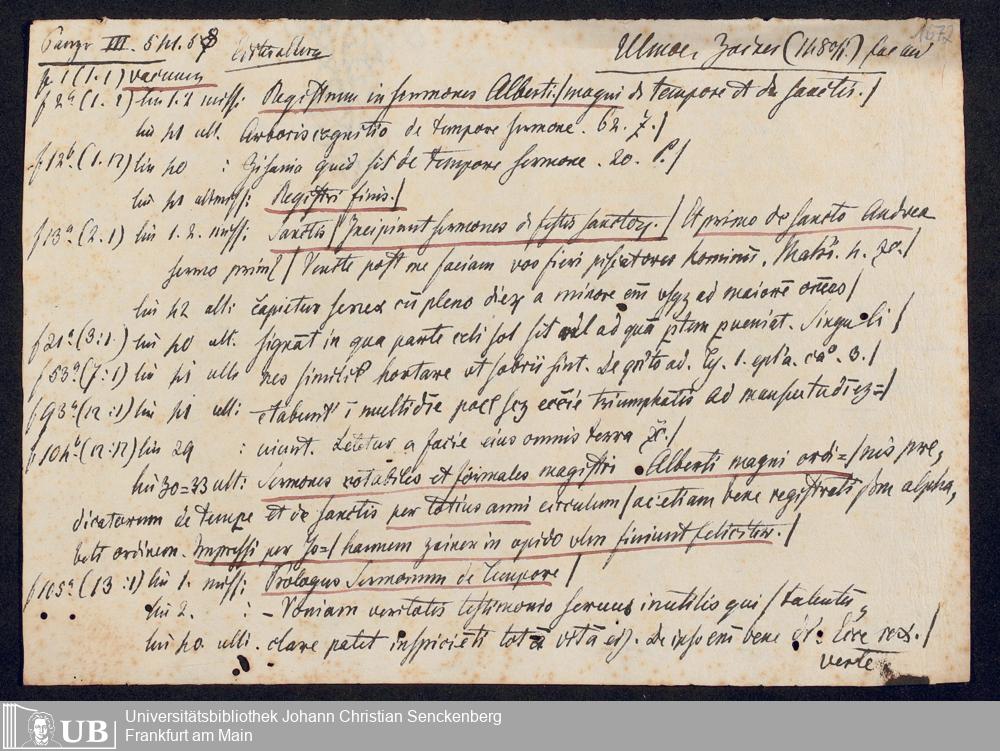 Panzer III. 541. 58 Ulmae, Zainer (1480/1) fac an 1672
f. 1 (1.1) vacuum
f 2a (1.2) lin 1.2 miss: Registrum in sermones Alberti / magni de tempore et de sanctis. /
lin 41 ult. Arboris cognitio de tempore sermone. 62. 7. /
f. 12b (1.12) lin 40 : Zisania quid sit de tempore sermone. 20. P. /
lin 41 ult miss: Registri finis. /
f 13a (2.1) lin 1.2. miss: Sanctis / Incipiunt sermones de festis sanctoꝝ. / Et primo de sancto Andrea
sermo / Venite post me faciam vos fieri piscatores hominū. Math. 4.
lin 42 ult: capietur senex cū pleno dieꝝ a minore em̄ vsqꝫ ad maiorē omēs /
f 21a (3:1) lin 40 ult. signāt in qua parte celi sol sit vel ad quā ptem pueniat. Singuli /
f 53a (7:1) lin 41 ult: nes hortare vt sobrii sint. De ad. 1. ca°. 3. /
f 93a (12:1) lin 41 ult: ctabunt ī multidīe triumphatis Ad mansuetudīeꝫ= /
f 104b (12:12) lin 29 : uiunt. Letetur a facie eius omnis terra /
lin 30=33 ult: Sermones notabiles et formales magistri Alberti magni ordi= / nis pre,
dicatorum de tempe et de sanctis per totius anni circulum / ac etiam bene registrati alpha,
beti ordinem. Impressi per Jo= / hannem zainer in opido vlm finiunt feliciter. /
f 105a (13:1) lin 1. miss: Prologus Sermonum de Tempore /
lin 2. : - Voniam veritatis testimonio seruus inutilis qui / talentū,
lin 40. ult: clare patet inspiciēti totā vitā De ipso em̄ bene Ecce rex. /
verte
Universitätsbibliothek Johann Christian Senckenberg
Frankfurt am Main
UB